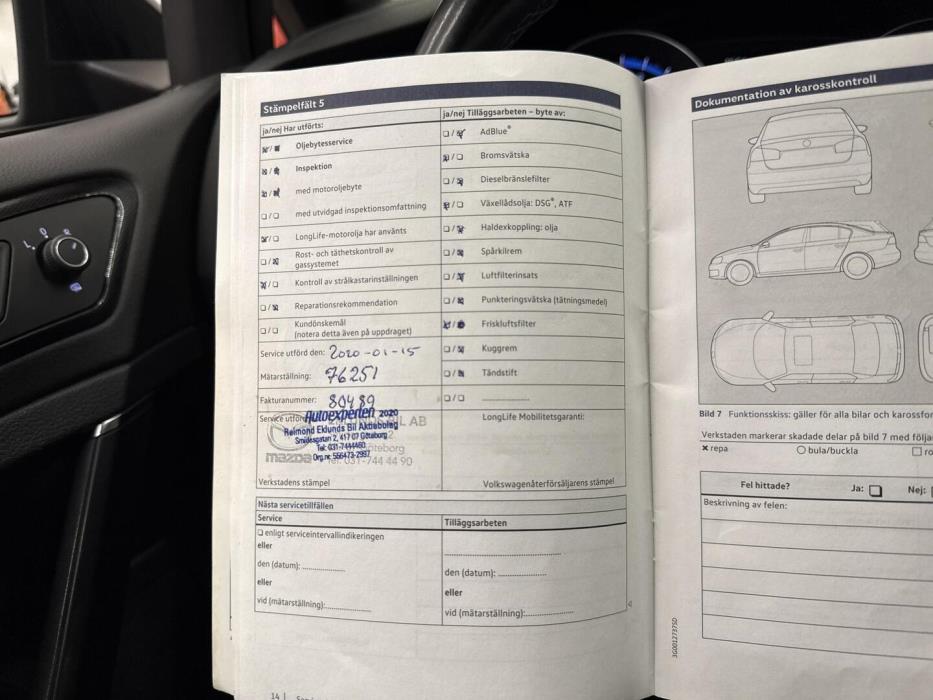 Stämpelfält 5
ja/nej Har utförts:
Oljebytesservice
Inspektion
med motoroljebyte
med utvidgad inspektionsomfattning
LongLife-motorolja har använts
Rost- och täthetskontroll av
gassystemet
Kontroll av strålkastarinställningen
Reparationsrekommendation
Kundönskemål
(notera detta även på uppdraget)
Service utförd den: 2020-01-15
Mätarställning: 76251
Fakturanummer: 80489
Service utförd
Autoexperten 2020
BIL AB
Reimond Eklunds Bil Aktiebolag
Smidesgatan 2, 417 07 Göteborg
Tel: 031-7444460
Org.nr. 556473-2997
mazda
Tel. 031-744 44 90
Verkstadens stämpel
ja/nej Tilläggsarbeten – byte av:
AdBlue®
Bromsvätska
Dieselbränslefilter
Växellådsolja: DSG®, ATF
Haldexkoppling: olja
Spårkilrem
Luftfilterinsats
Punkteringsvätska (tätningsmedel)
Friskluftsfilter
Kuggrem
Tändstift
LongLife Mobilitetsgaranti:
Volkswagenåterförsäljarens stämpel
Nästa servicetillfällen
Service
enligt serviceintervallindikeringen
eller
den (datum):
eller
vid (mätarställning):
Tilläggsarbeten
den (datum):
eller
vid (mätarställning):
14
Dokumentation av karosskontroll
Bild 7 Funktionsskiss: gäller för alla bilar och karossfor
Verkstaden markerar skadade delar på bild 7 med följa
repa
bula/buckla
ro
Fel hittade?
Ja:
Nej:
Beskrivning av felen:
3G0012737SD
L
0
R